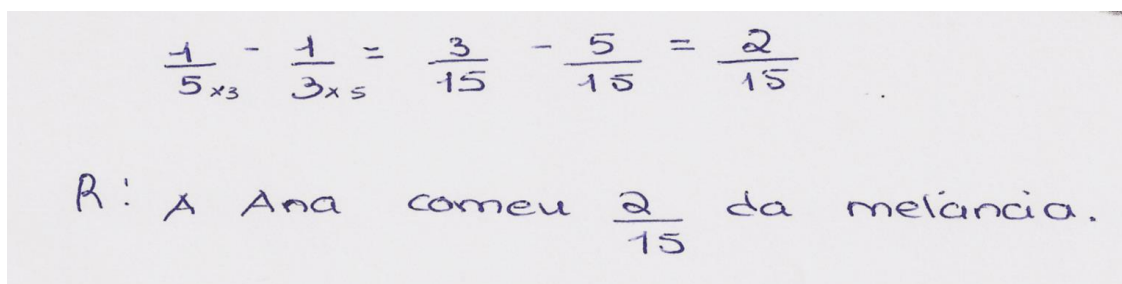 1/5 ×3 - 1/3 × 5 = 3/15 - 5/15 = 2/15
R: A Ana comeu 2/15 da melancia.